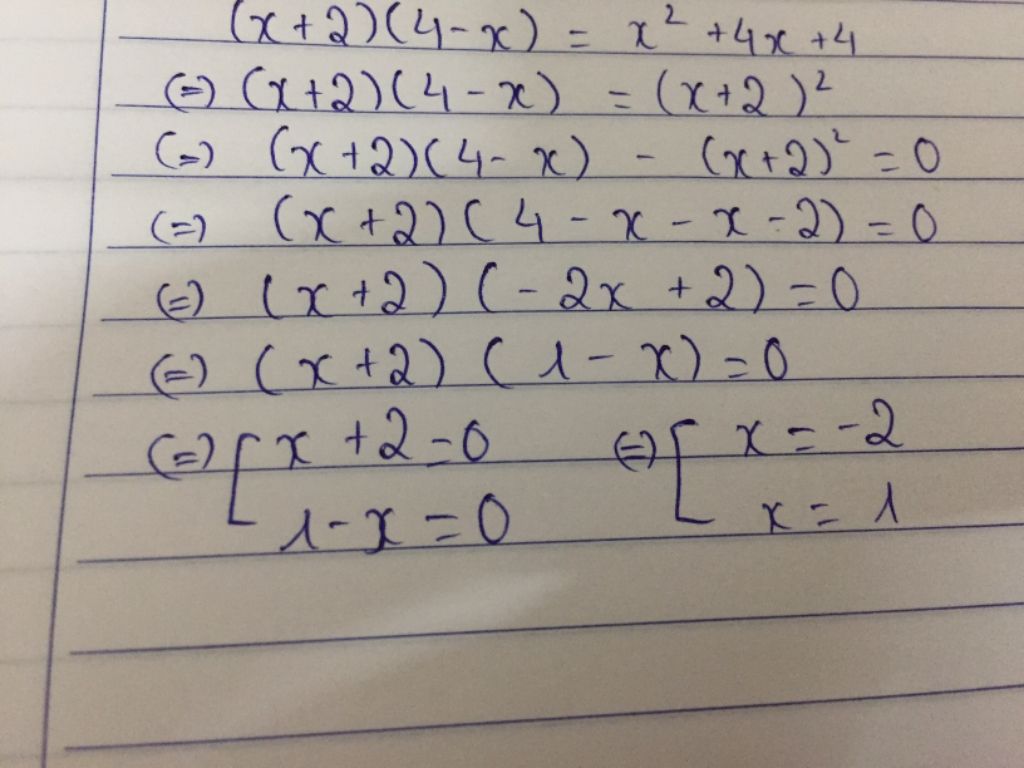 (x+2)(4-x) = x² +4x +4
(=) (x+2)(4-x) = (x+2)²
(=) (x+2)(4-x) - (x+2)² = 0
(=) (x+2)(4-x-x-2) = 0
(=) (x+2)(-2x+2) = 0
(=) (x+2)(1-x) = 0
(=) [ x+2=0 (=) [ x=-2
1-x=0 x=1